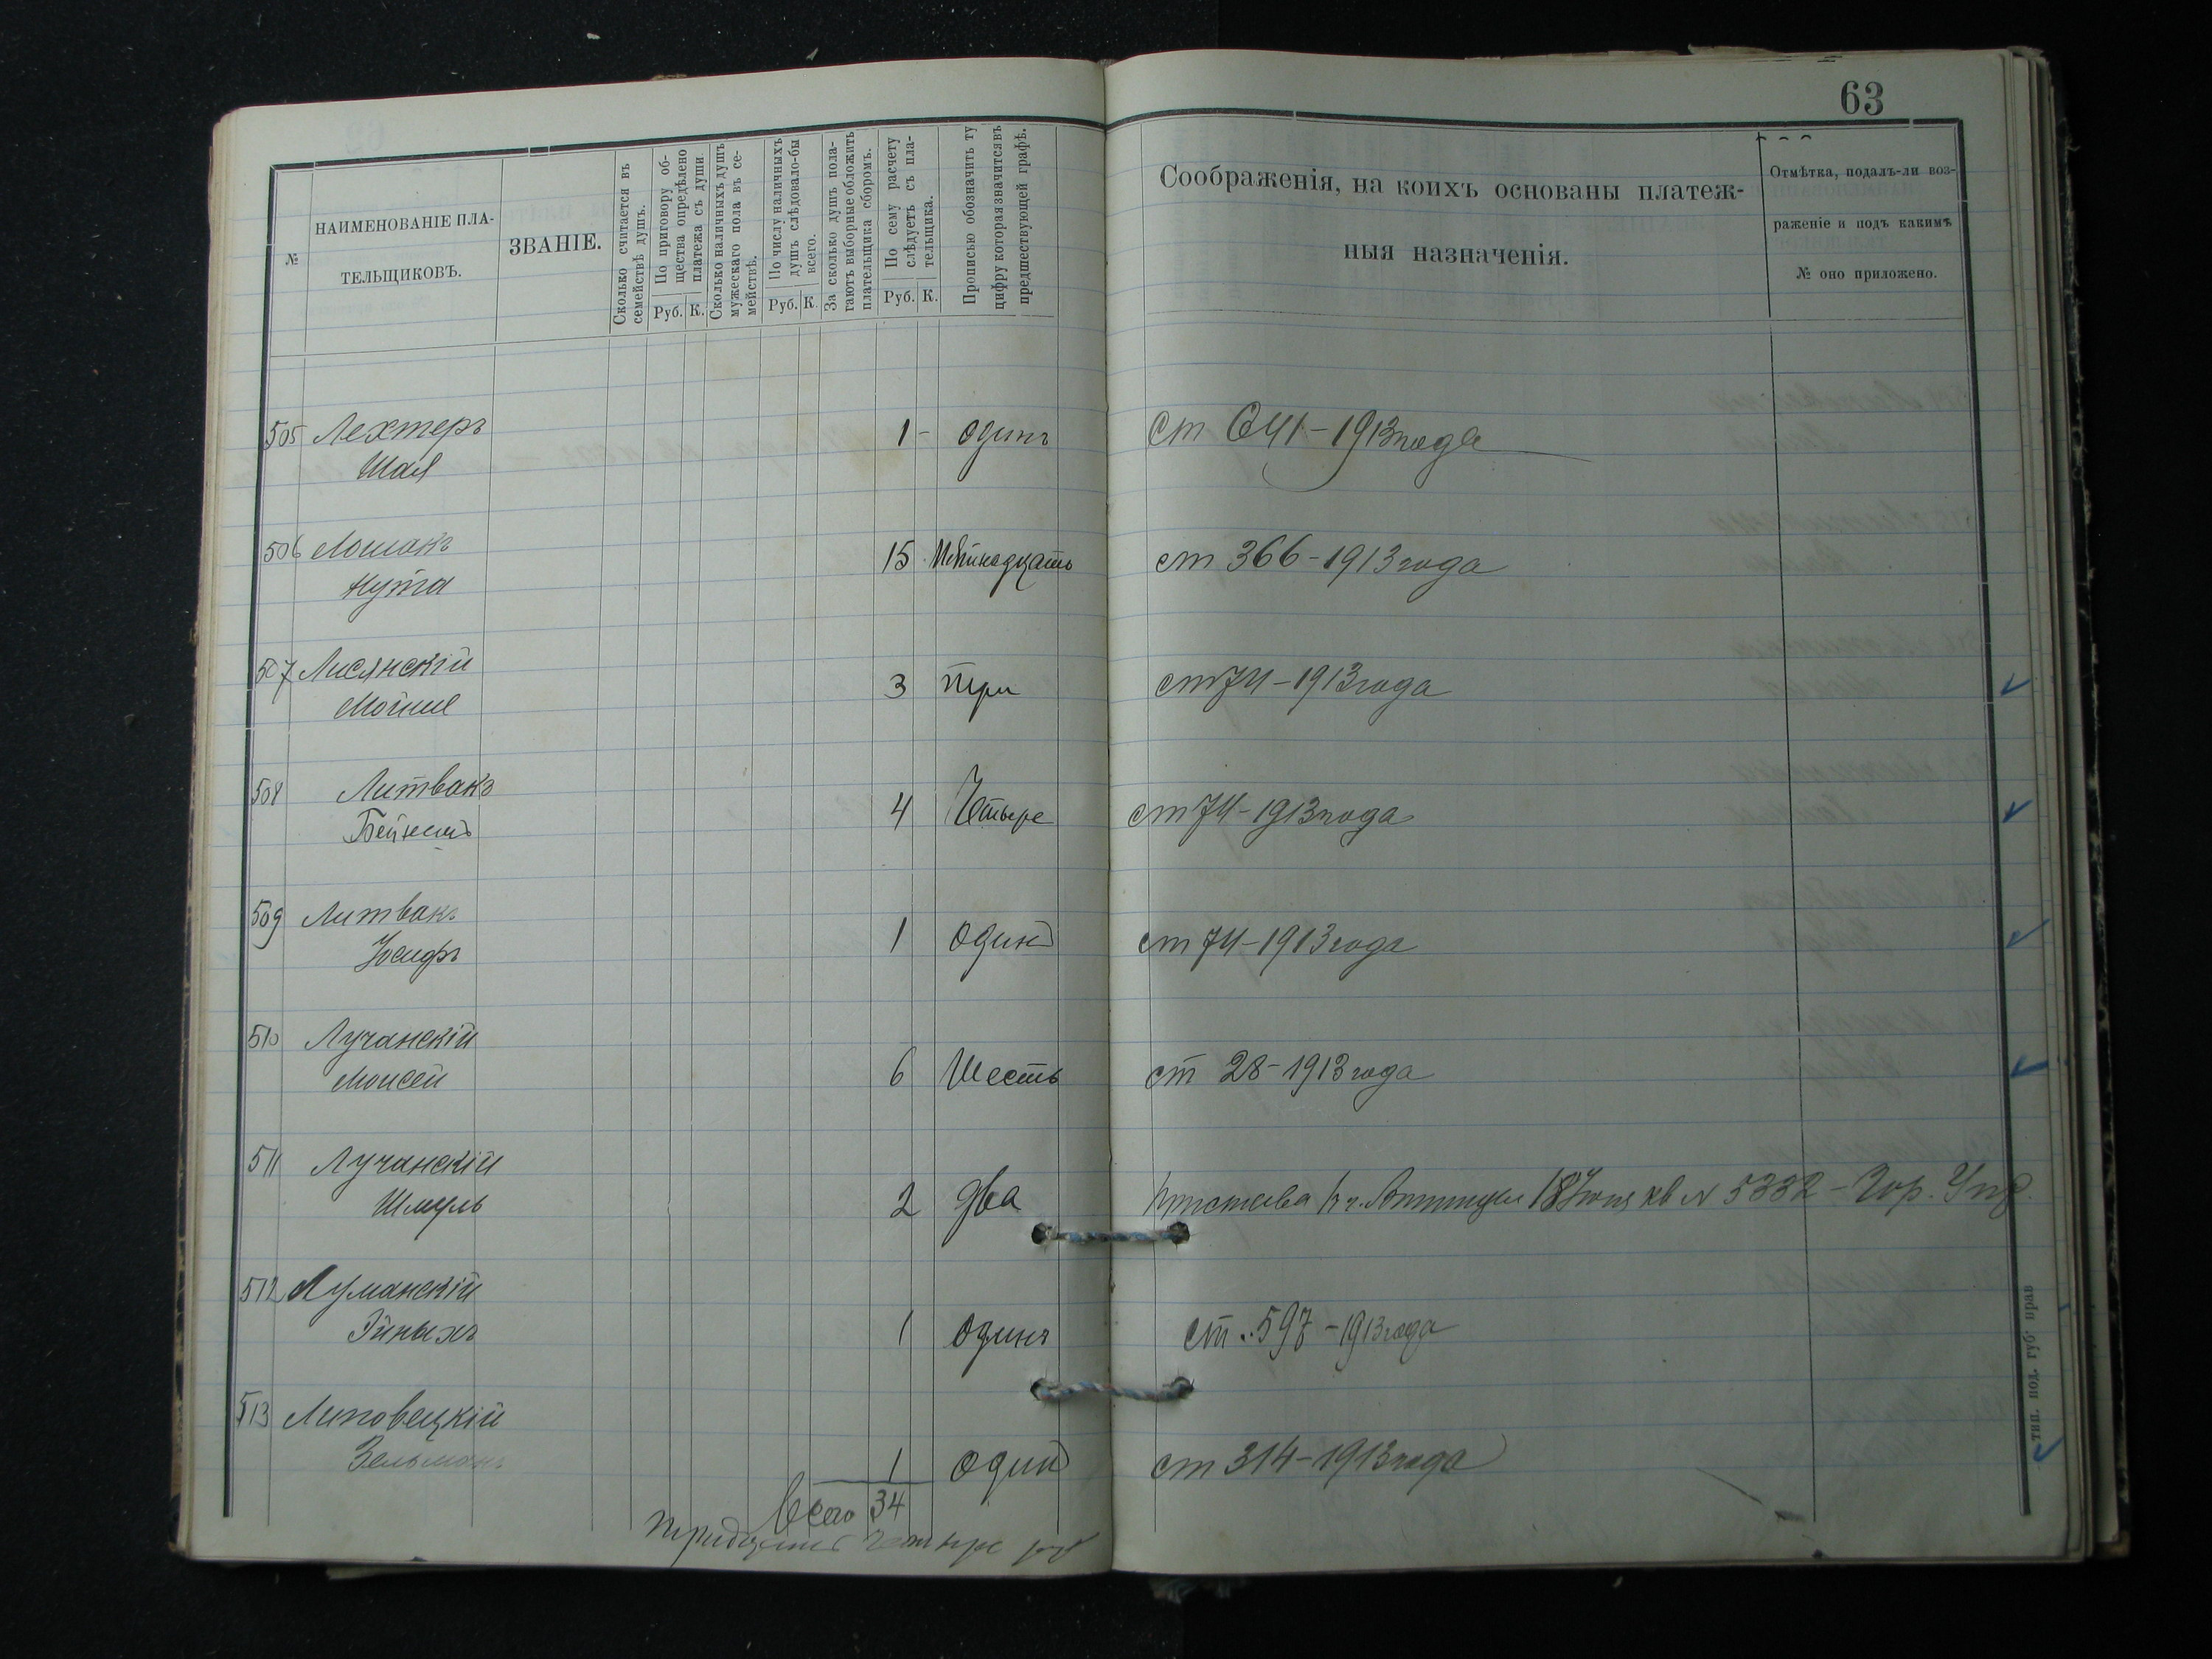 63
№
НАИМЕНОВАНІЕ ПЛА-
ТЕЛЬЩИКОВЪ.
ЗВАНІЕ.
Сколько считается въ
семействѣ душъ.
По приговору об-
щества опредѣлено
платежа съ души.
Руб. К.
Сколько наличныхъ душъ
мужескаго пола въ се-
мействѣ.
По числу наличныхъ
душъ слѣдовало-бы
всего.
Руб. К.
За сколько душъ пола-
гаютъ выборные обложить
плательщика сборомъ.
По сему расчету
слѣдуетъ съ пла-
тельщика.
Руб. К.
Прописью обозначить ту
цифру которая значится въ
предшествующей графѣ.
Соображенія, на коихъ основаны платеж-
ныя назначенія.
Отмѣтка, подалъ-ли воз-
раженіе и подъ какимъ
№ оно приложено.
505 Лехтеръ 1 - одинъ ст 641 - 1913 года
Шая
506 Лошакъ 15 Пятнадцать ст 366 - 1913 года
Нута
507 Лисянскій 3 три ст 74 - 1913 года
Мойше
508 Литвакъ 4 Четыре ст 74 - 1913 года
Бейнишъ
509 Литвакъ 1 один ст 74 - 1913 года
Іосифъ
510 Лучанскій 6 Шесть ст 28 - 1913 года
Моисей
511 Лучанскій 2 два Пристава 18 Іюня кв N 5332 - Гор. Упр.
Шмуль
512 Луманскій 1 одинъ ст. 597 - 1913 года
Эйныхъ
513 Липовецкій 1 один ст 314 - 1913 года
Зельманъ
Всего 34
тридцать четыре руб
тип. под. губ. прав